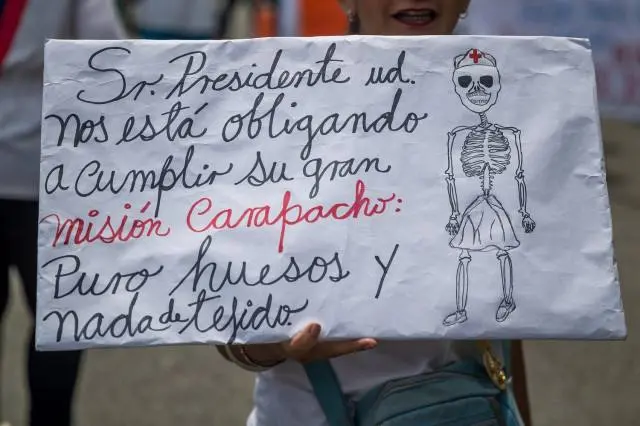 Sr. Presidente ud.
nos está obligando
a cumplir su gran
misión Carapacho:
Puro huesos y
nada de tejido.